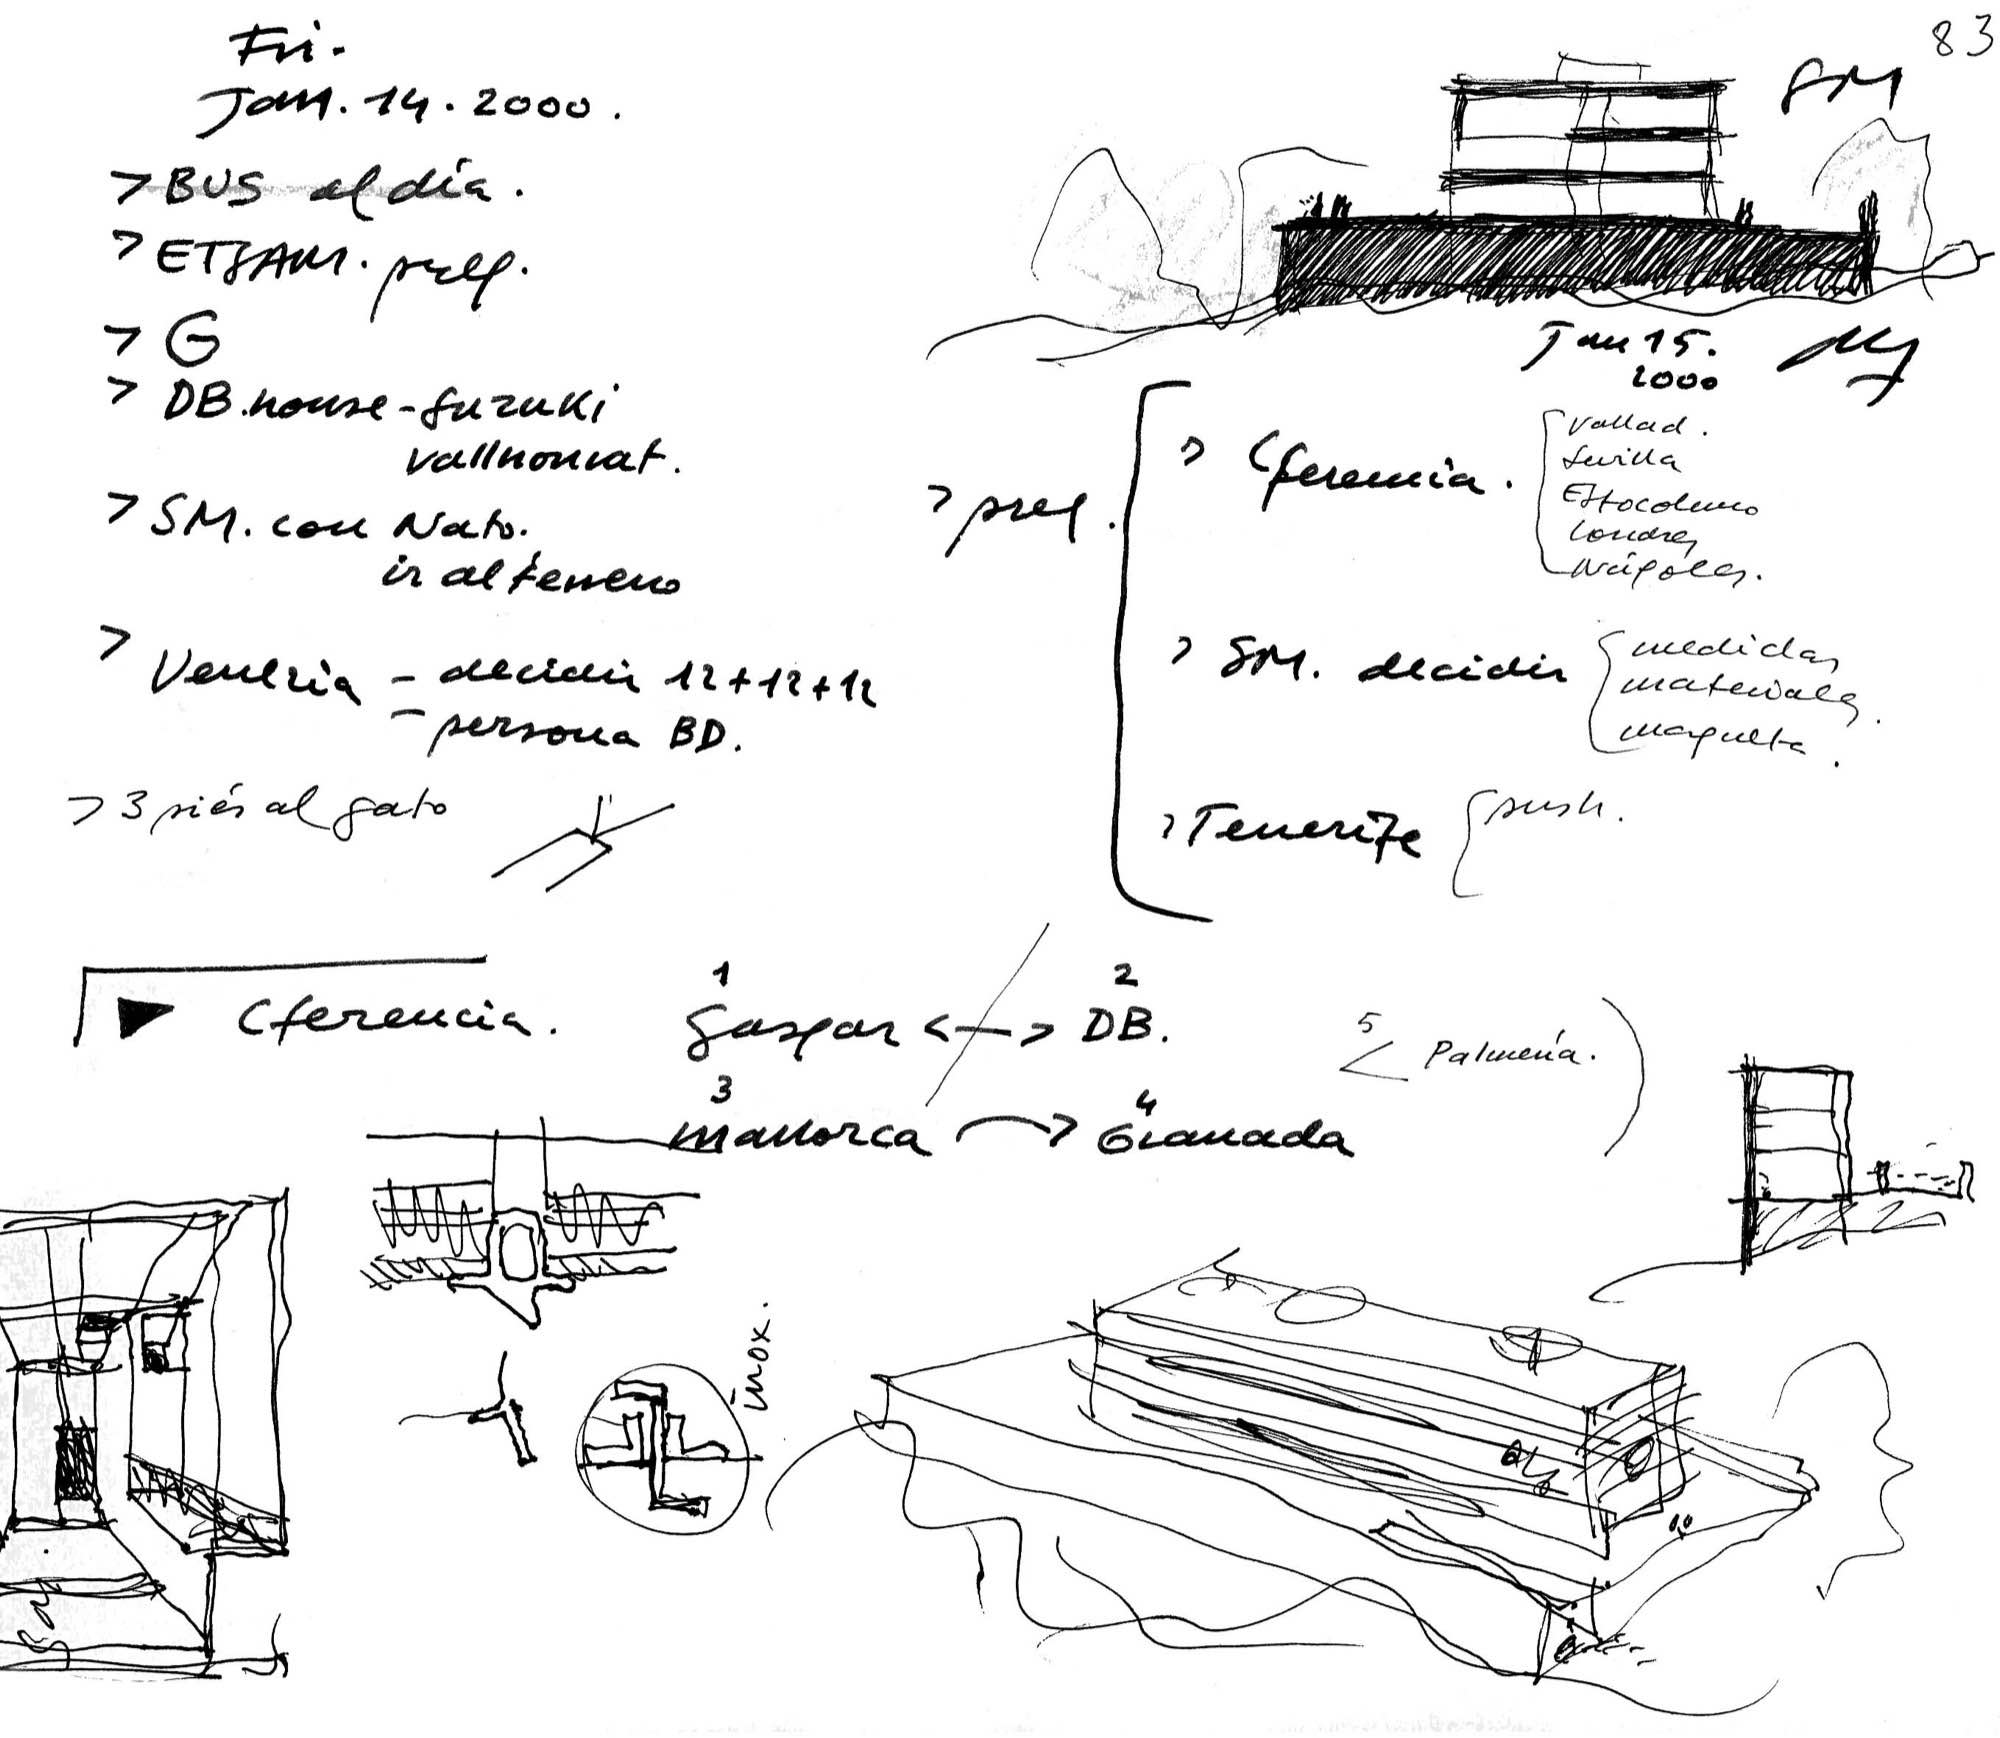 83
Fri.
Jan. 14. 2000.
> BUS al día.
> ETSAM. prep.
> G
> DB. house - Suzuki
vallhonrat.
> SM. con Nato.
ir al terreno
> Venezia - decidir 12+12+12
- persona BD.
> 3 piés al gato
SM
Jan 15.
2000
> prep.
> Cferencia.
Vallad.
Sevilla
Estocolmo
Londres
Nápoles.
> SM. decidir
medidas
materiales
maqueta.
> Tenerife
push.
Cferencia.
1 2
Gaspar <—> DB.
3 4
Mallorca → Granada
5
< Palmería.
inox.